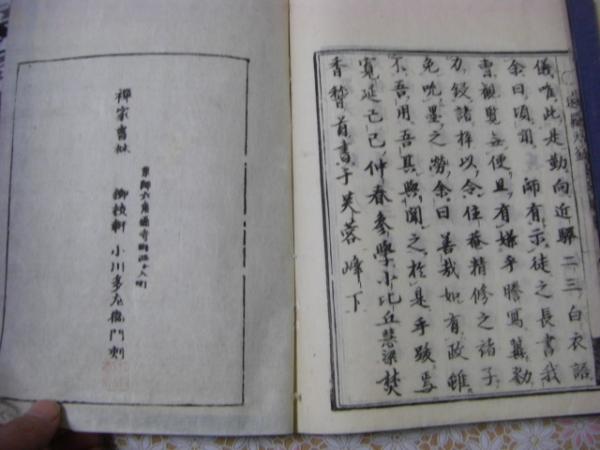 儀唯此是勤向近驛二三白衣語
余曰頃聞 師有示徒之長書我
曹觀覽無便且有嫌乎謄寫冀勒
力鋟諸梓以令住菴精修之諸子
免吮墨之勞余曰善哉如有政雖
不吾用吾其與聞之於是乎跋焉
寛延己巳仲春參學小比丘慧梁焚
香稽首書于芙蓉峰下
禪家書林
京師六角通寺町西へ入町
柳枝軒 小川多左衞門刻